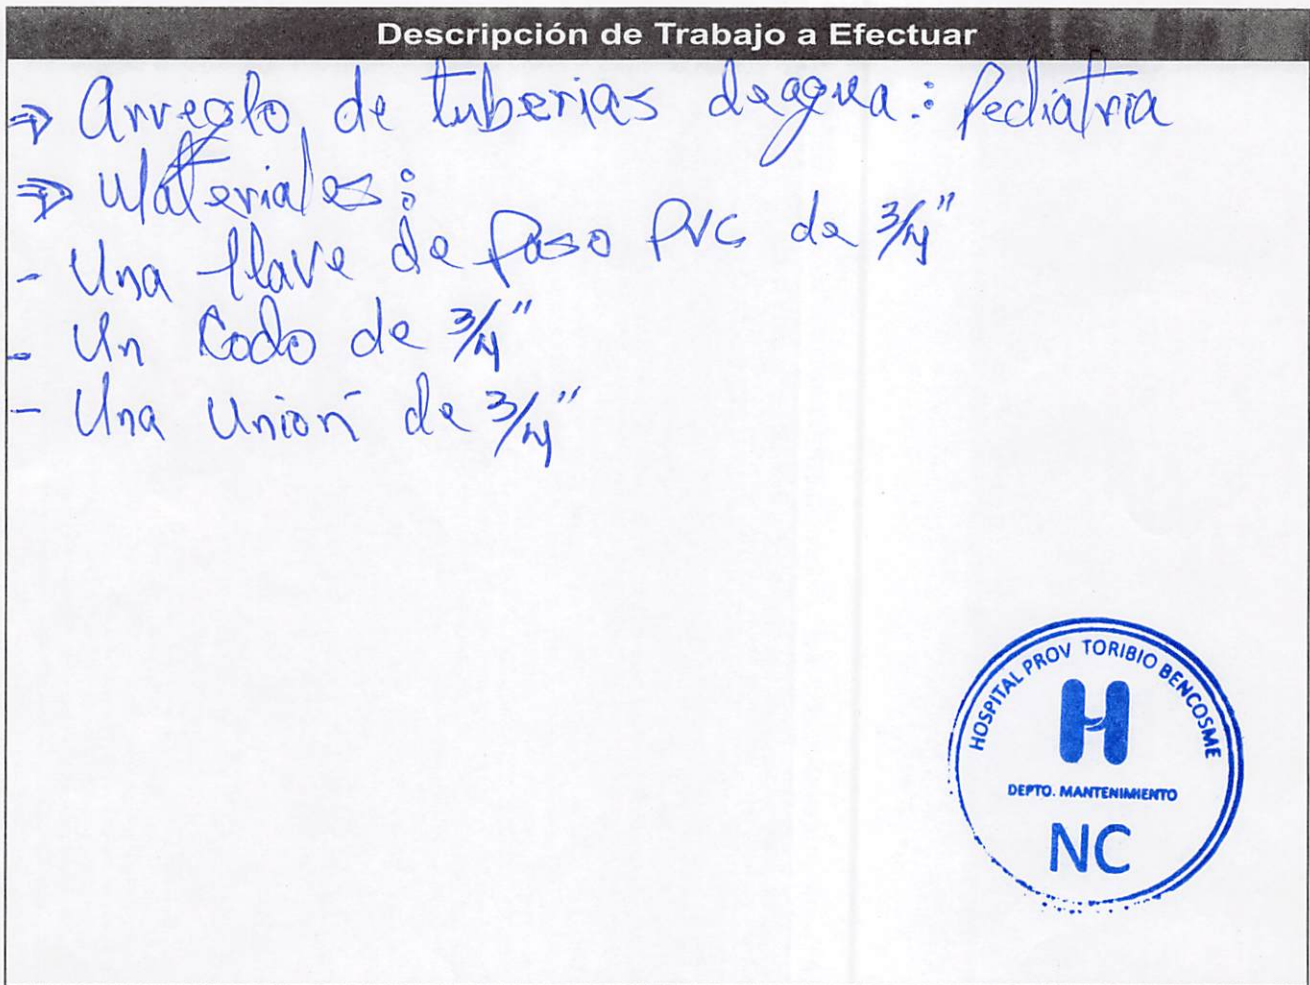 Descripción de Trabajo a Efectuar
⇒ Arreglo de tuberias de agua: Pediatria
⇒ Materiales:
- Una llave de Paso PVC de 3/4"
- Un Codo de 3/4"
- Una Unión de 3/4"
HOSPITAL PROV TORIBIO BENCOSME
H
DEPTO. MANTENIMIENTO
NC